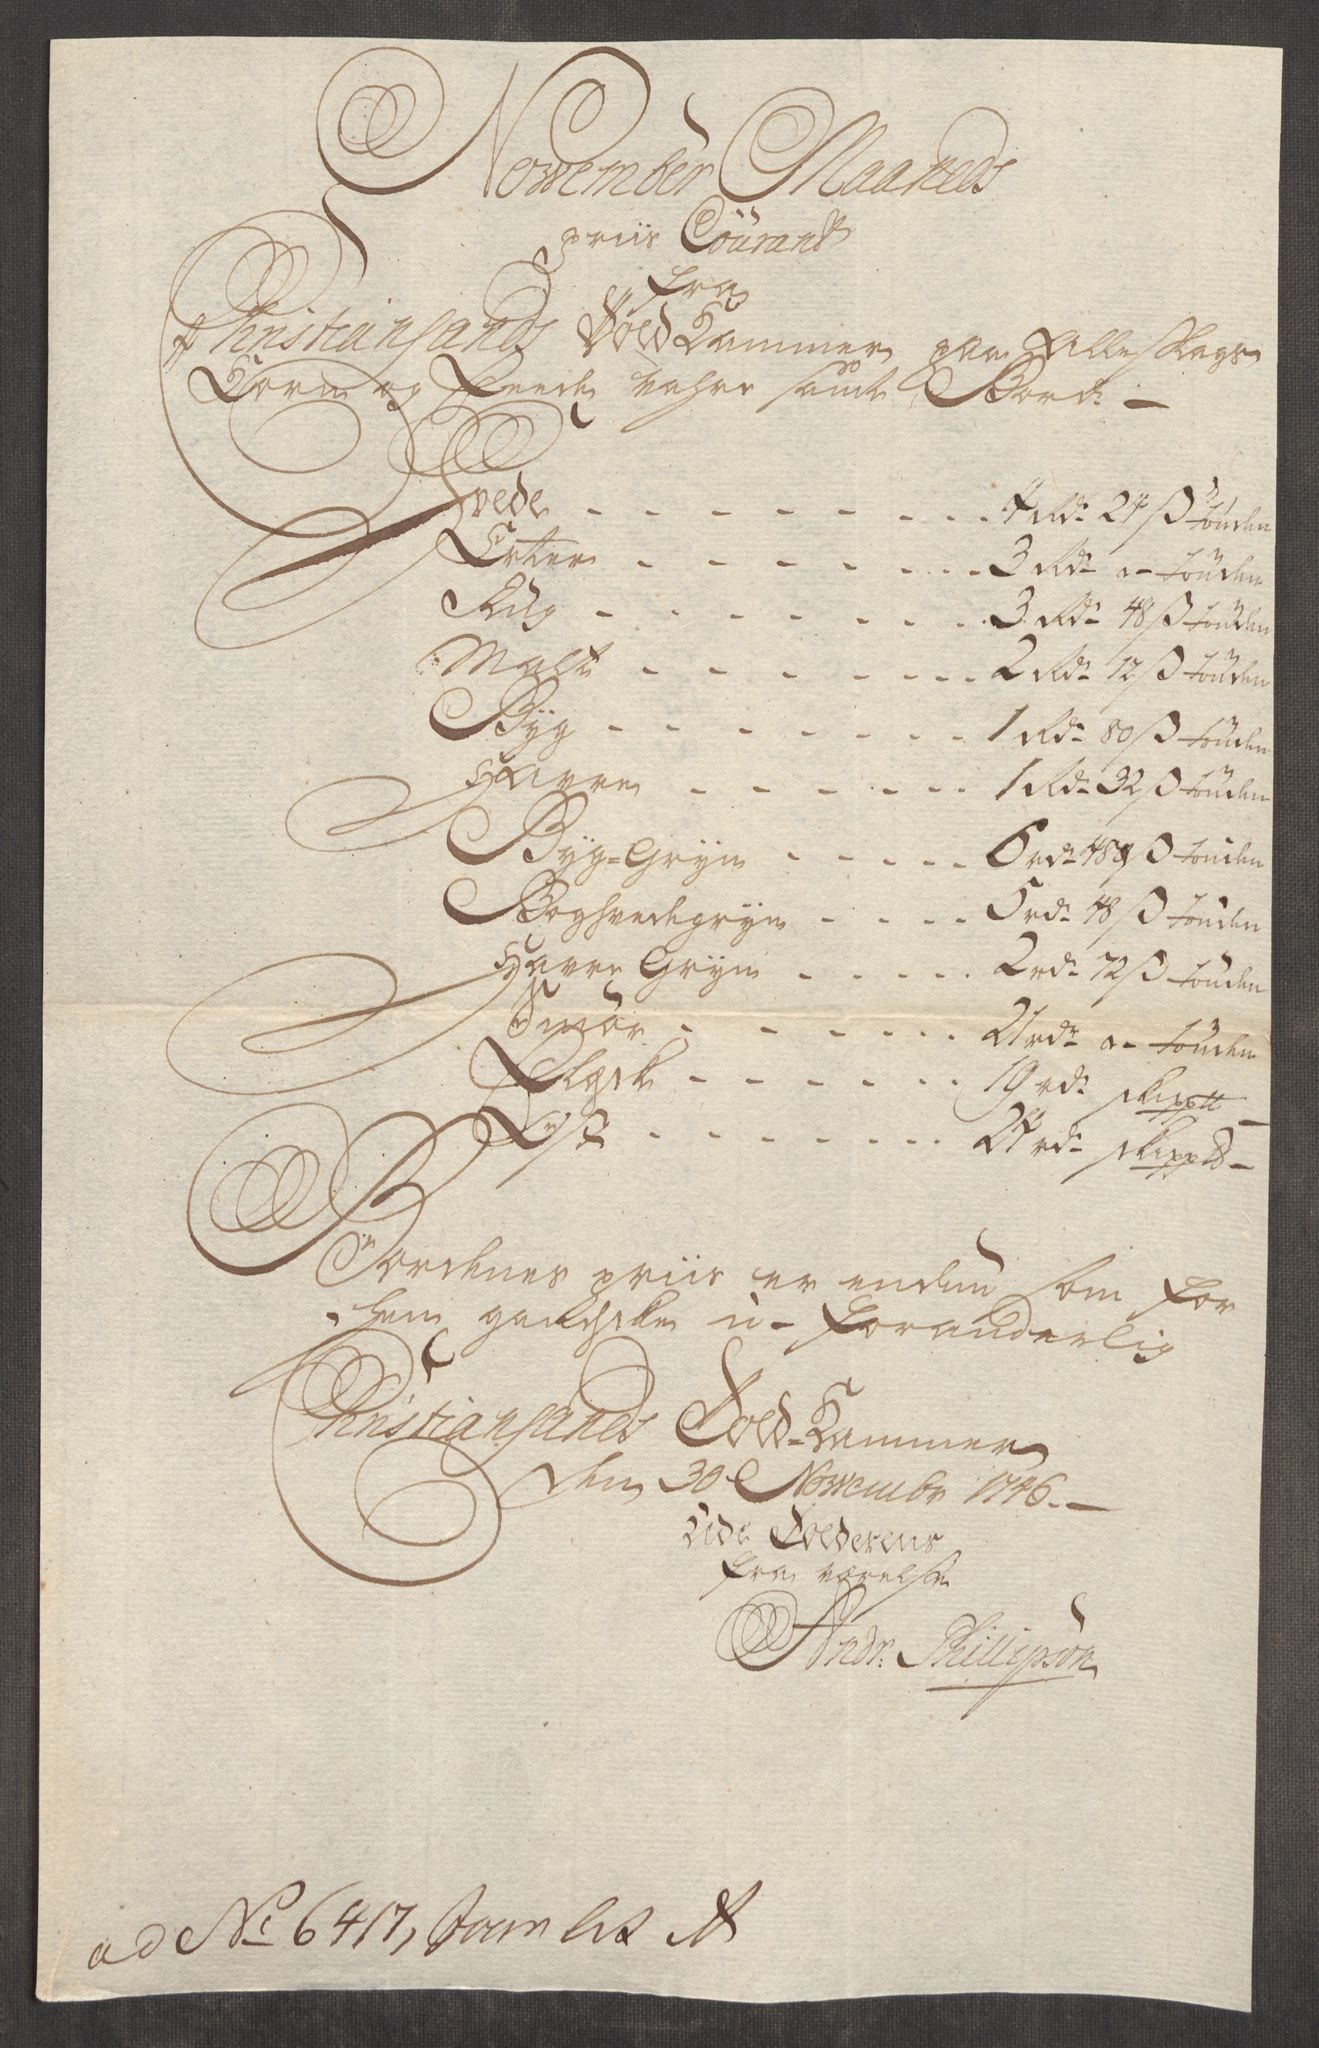 November Maaneds
priis Courant
fra
Christiansands Told Kammer paa Alle Slags
Korn og Feede vahre samt Bord. —
Hvede - - - - - - - - 4 Rdr 24 ß tönden
Erter - - - - - - - - 3 Rdr " - tönden
Rüg - - - - - - - - 3 Rdr 48 ß tönden
Malt - - - - - - - 2 Rdr 12 ß tönden
Byg - - - - - - - 1 Rdr 80 ß tönden
Havre - - - - - - 1 Rdr 32 ß tönden
Byg=Gryn - - - - - 6 rdr 48 ß tönden
Boghvedegryn - - - - 5 rdr 48 ß tönden
Havre Gryn - - - - - 2 rdr 72 ß tönden
Smör - - - - - - 21 rdr " - tönden
Flesk - - - - - - 19 rdr skipptt
- - - - - - - - 24 rdr skippt —
Bordenes priis er endnu som for
hen gandske u-foranderlig
Christiansands Told-Kammer
den 30 Novembr 1746. —
Udi Tolderens
fra værelse
Andr. Phillipson
ad No 6417, Litr A